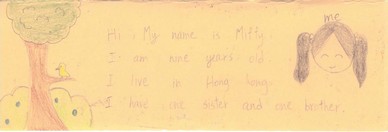 me
Hi. My name is Miffy.
I am nine years old.
I live in Hong Kong.
I have one sister and one brother.